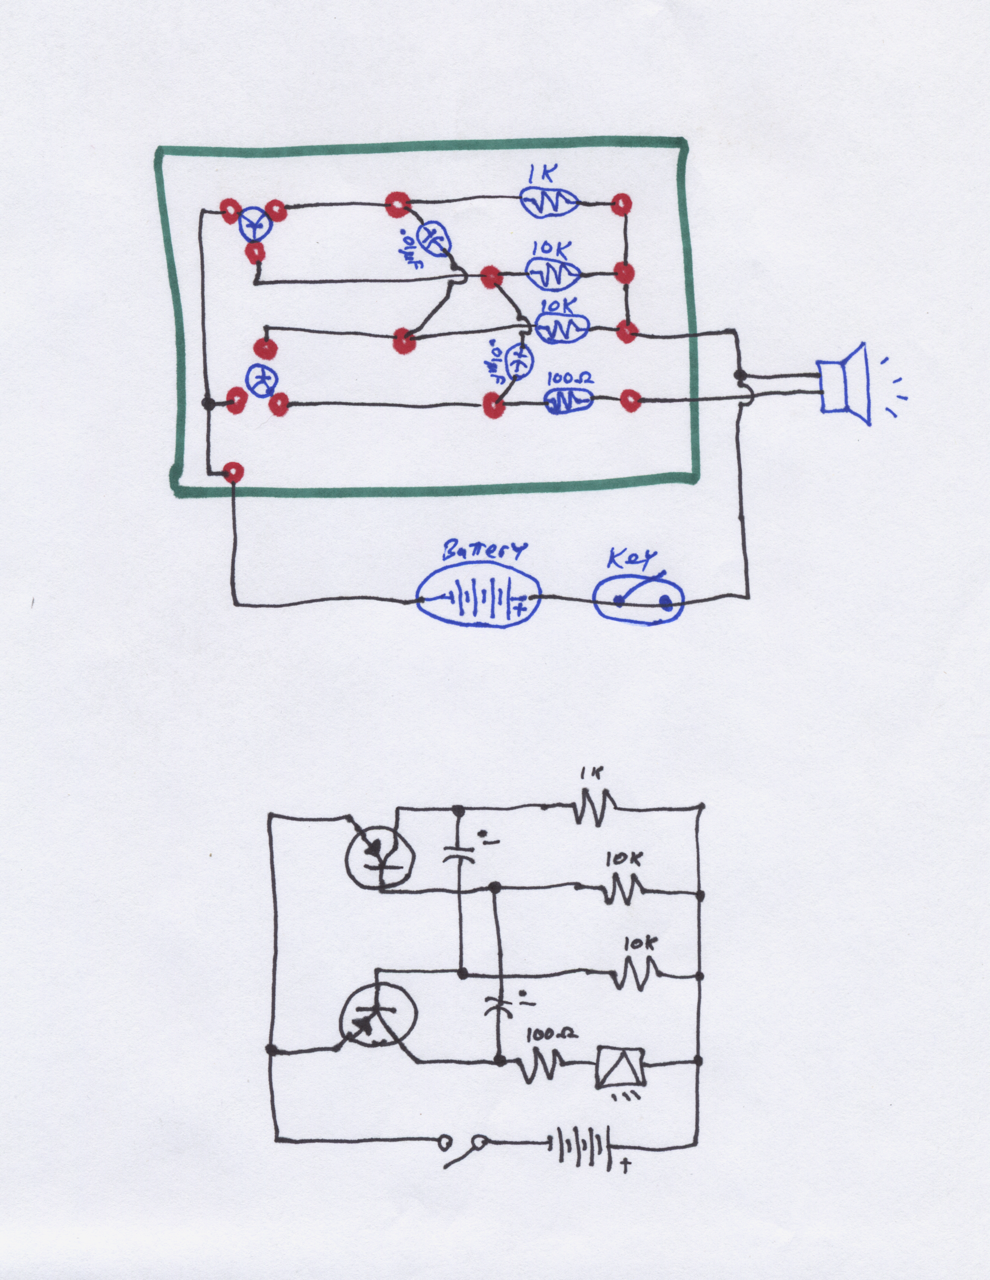 1K
.01µF
10K
10K
.01µF
100Ω
Battery
Key
+
1K
.1
10K
10K
.1
100Ω
+